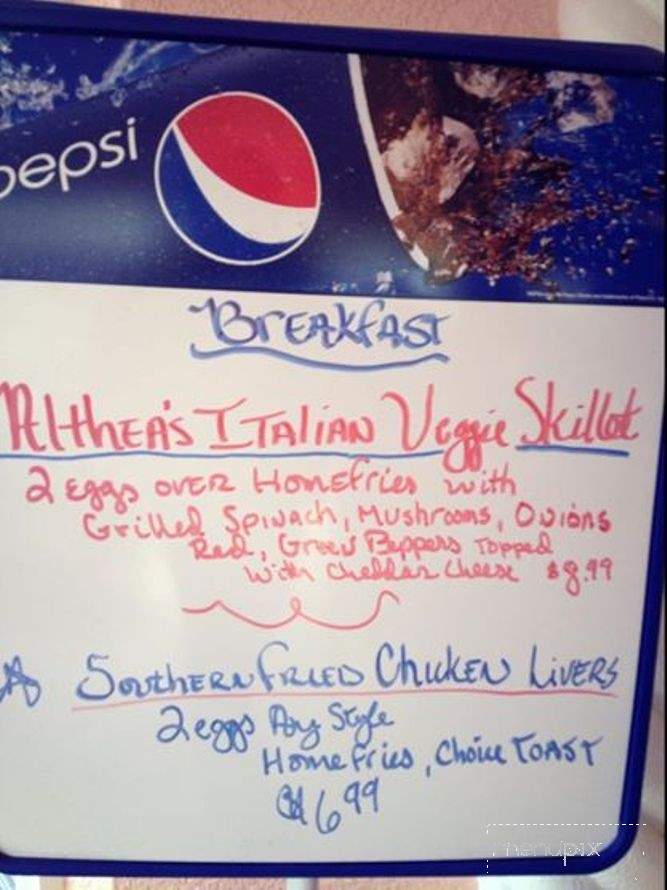 pepsi
Breakfast
Althea's Italian Veggie Skillet
2 eggs over Homefries with
Grilled Spinach, Mushrooms, Onions
Red, Green Peppers Topped
with Cheddar Cheese $8.99
Southern Fried Chicken Livers
2 eggs Any Style
Home fries, Choice Toast
$6.99
menupix